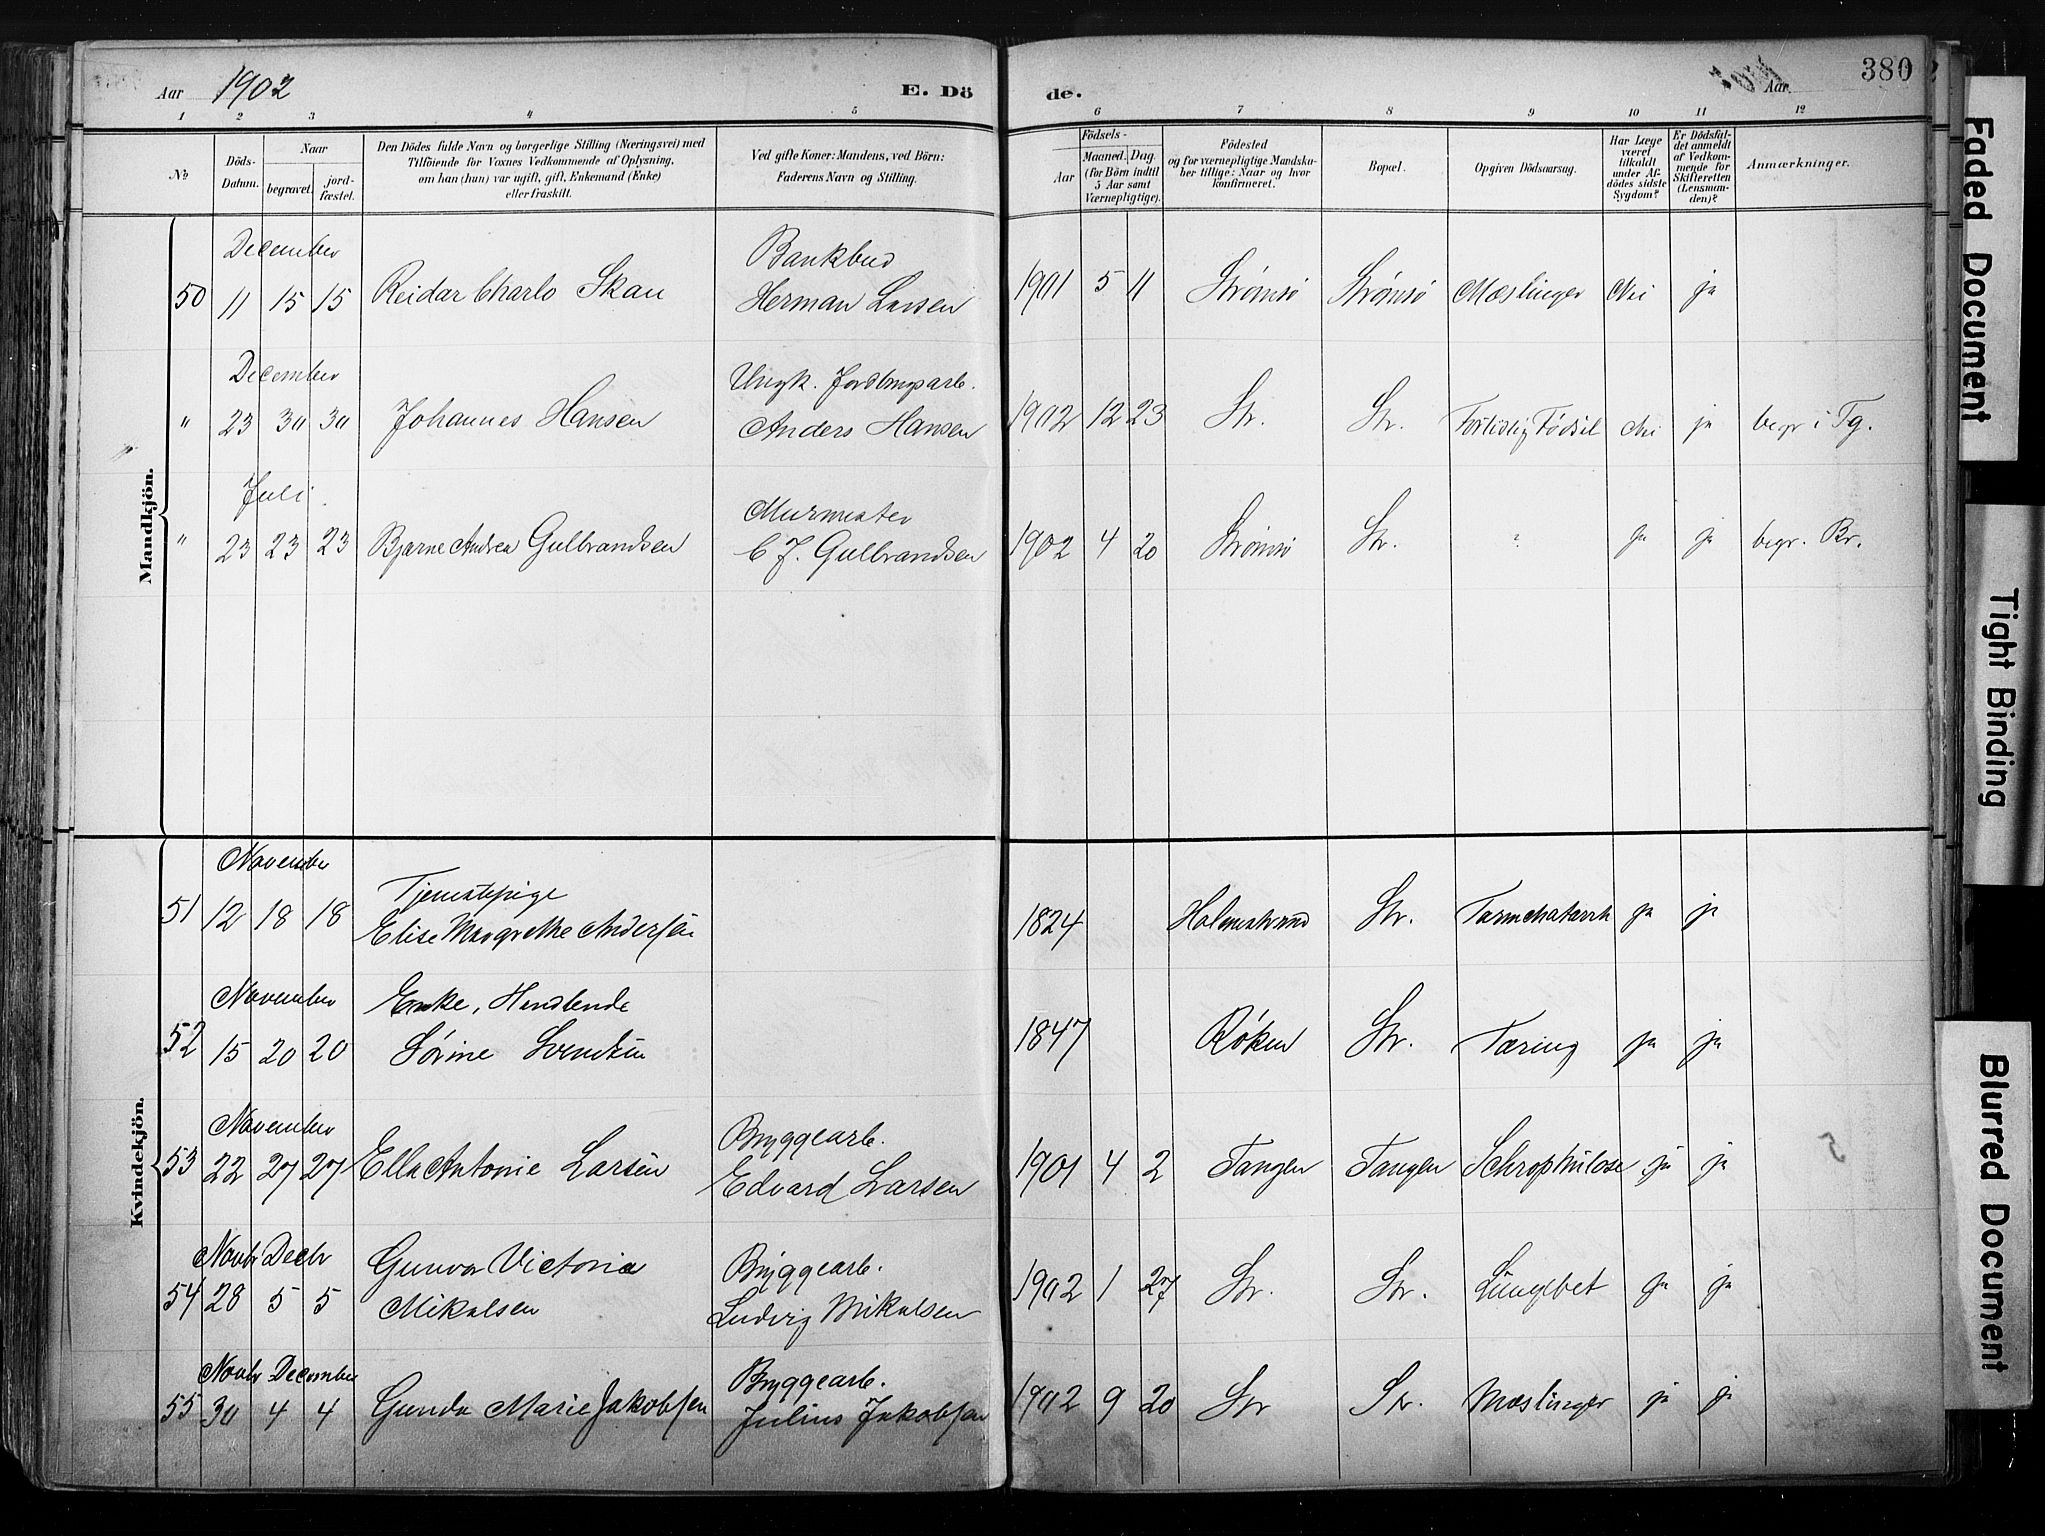 Aar 1902 E. Dö de. Aar 380
1 2 3 4 5 6 7 8 9 10 11 12
№
Döds-Datum.
Naar
begravet.
jord-fæstet.
Den Dödes fulde Navn og borgerlige Stilling (Næringsvei) med
Tilföiende for Voxnes Vedkommende af Oplysning,
om han (hun) var ugift, gift, Enkemand (Enke)
eller fraskilt.
Ved gifte Koner: Mandens, ved Börn:
Faderens Navn og Stilling.
Födsels-
Aar
Maaned. Dag.
(for Börn indtil
5 Aar samt
Værnepligtige).
Födested
og for værnepligtige Mandska-
ber tillige: Naar og hvor
konfirmeret.
Bopæl.
Opgiven Dödsaarsag.
Har Læge
været
tilkaldt
under Af-
dödes sidste
Sygdom?
Er Dödsfal-
det anmeldt
af Vedkom-
mende for
Skifteretten
(Lensman-
den)?
Anmærkninger.
Mandkjön.
December Bankbud
50 11 15 15 Reidar Charlo Skau Herman Larsen 1901 5 11 Strömsö Strömsö Mæslinger Nei ja
December Ungk. Jordbrugsarb.
" 23 30 30 Johannes Hansen Anders Hansen 1902 12 23 Str. Str. Fortidlig Födsel Nei ja begr i Tg.
Juli Murmester
" 23 23 23 Bjarne Andrea Gulbrandsen C J. Gulbrandsen 1902 4 20 Strömsö Str. ? ja ja begr. Br.
Kvindekjön.
November Tjenestepige
51 12 18 18 Elise Margrethe Andersen 1824 Holmestrand Str. Tarmchatarrh ja ja
November Enke, Handlende
52 15 20 20 Sörine Svendsen 1847 Röken Str. Tæring ja ja
November Byggearb.
53 22 27 27 Ella Antonie Larsen Edvard Larsen 1901 4 2 Tangen Tangen Schrophulose ja ja 5
Novbr Decbr Gunvor Victoria Byggearb.
54 28 5 5 Mikalsen Ludvig Mikalsen 1902 1 27 Str. Str. Lungebet ja ja
Novbr December Byggearb.
55 30 4 4 Gunda Marie Jakobsen Julius Jakobsen 1902 9 20 Str Str. Mæslinger ja ja
Faded Document
Tight Binding
Blurred Document